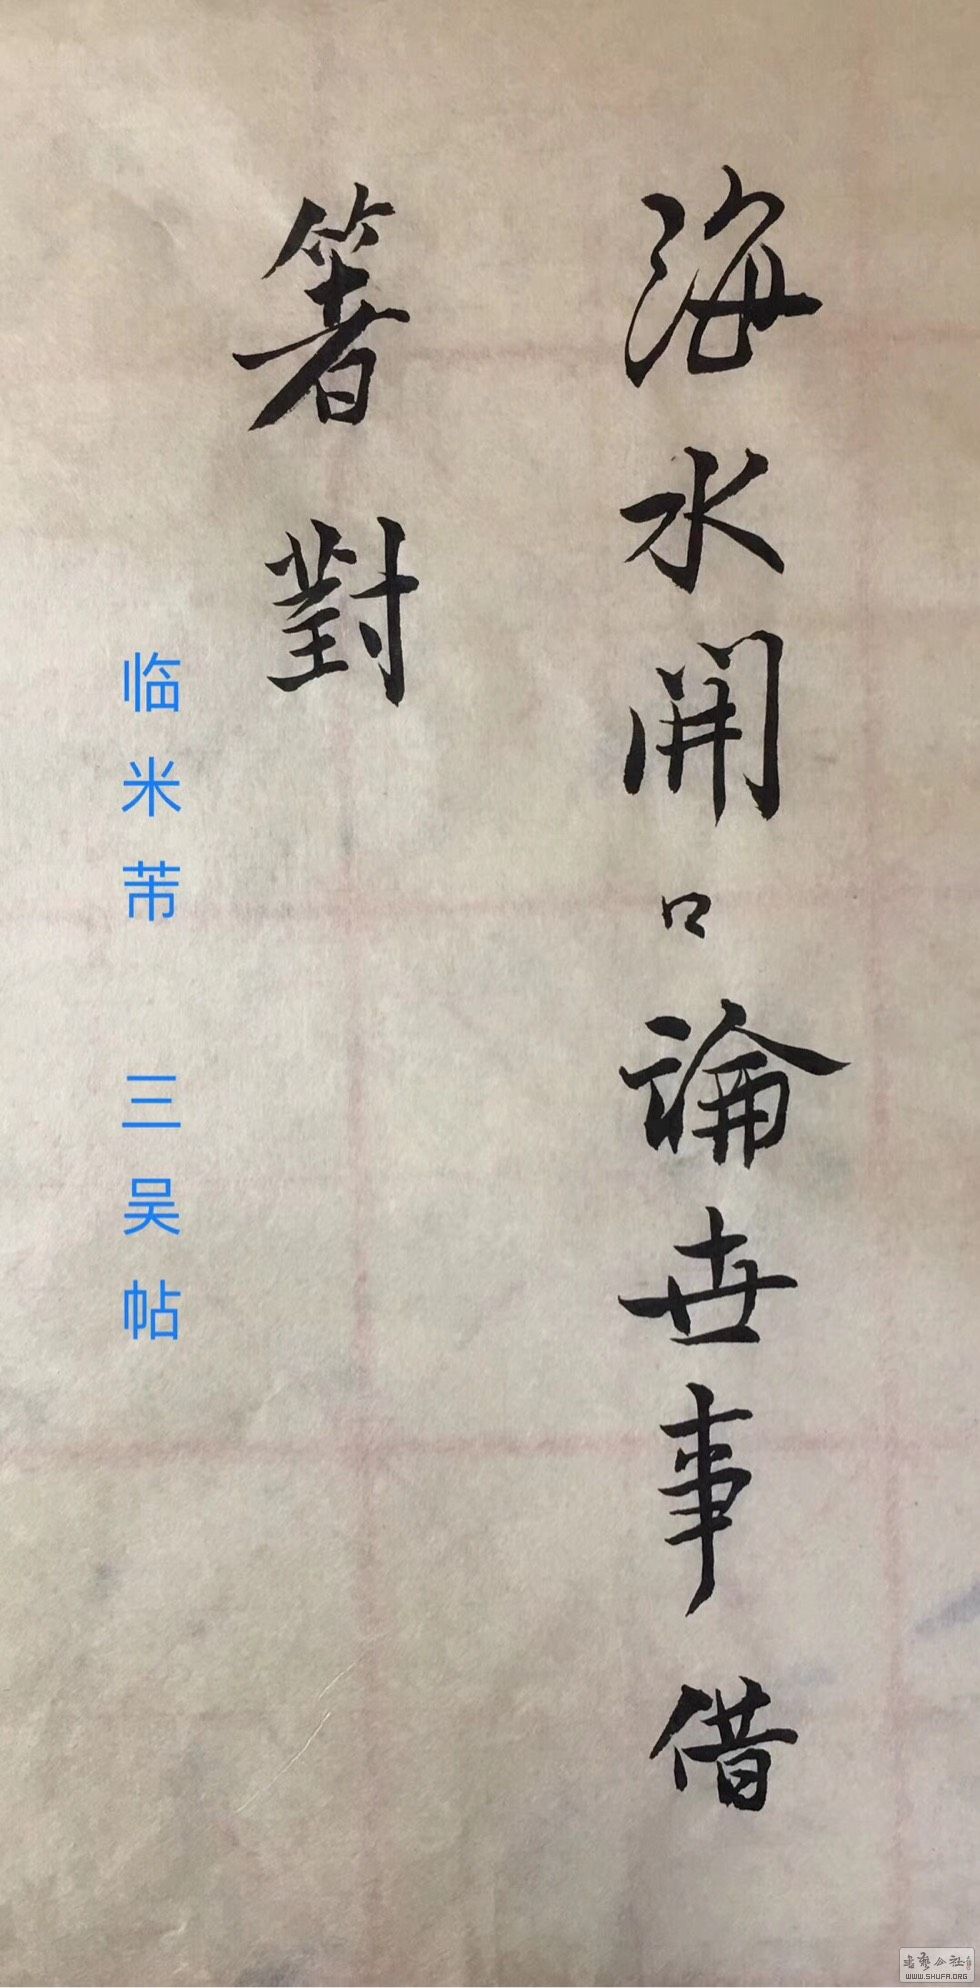 海水開口論世事借
箸對
临米芾 三吴帖
WWW.SHUFA.ORG